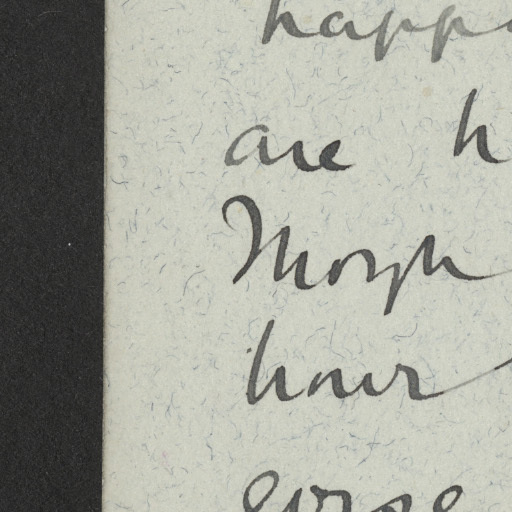 happ
are h
Morph
hour